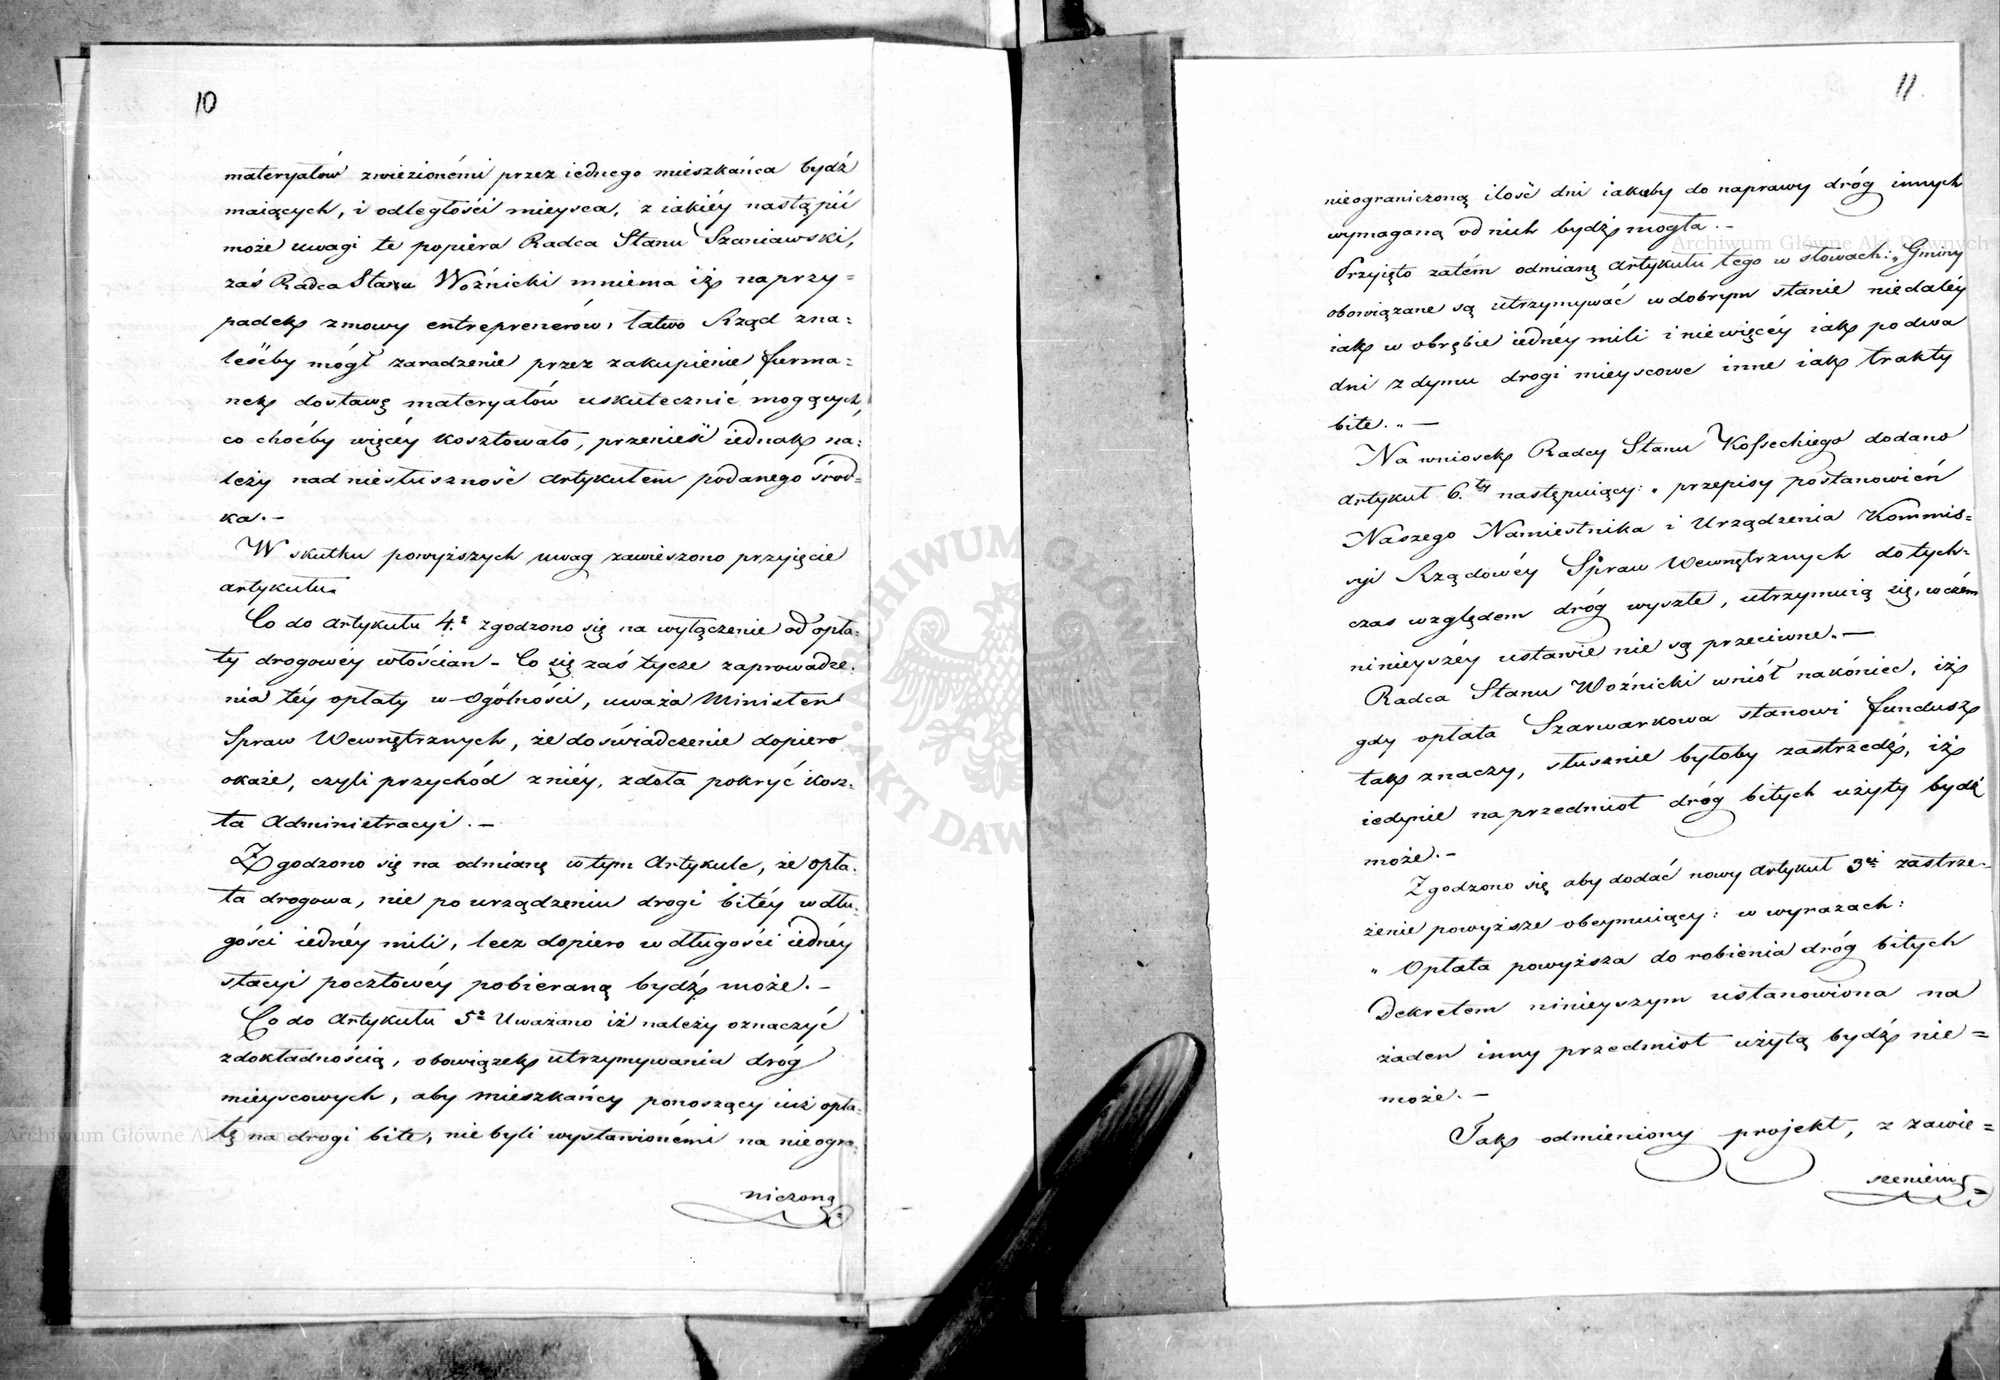 10
materyałów zwiezionémi przez iednego mieszkańca bydź
maiących, i odległości mieysca, z iakiéy nastąpić
może uwagi te popiéra Radca Stanu Szaniawski,
zaś Radca Stanu Woźnicki mniema iż na przy=
padek zmowy entreprenerów, łatwo Rząd zna=
leśćby mógł zaradzenie przez zakupienie furma=
nek dostawę materyałów uskutecznić mogących,
co choćby więcéy kosztowało, przenieść iednak na=
leży nad niesłuszność artykułem podanego środ=
ka.-
W skutku powyższych uwag zawieszono przyięcie
artykułu.
Co do artykułu 4.º zgodzono się na wyłączenie od opła=
ty drogowéy włościan - Co się zaś tycze zaprowadze=
nia téy opłaty w Ogólności, uważa Minister
Spraw Wewnętrznych, że doświadczenie dopiero
okaże, czyli przychód z niéy, zdoła pokryć kosz=
ta Administracyi.-
Zgodzono się na odmianę w tym Artykule, że opła=
ta drogowa, nie po urządzeniu drogi bitéy w dłu=
gości iednéy mili, lecz dopiero w długości iednéy
stacyi pocztowéy pobieraną bydź może.-
Co do Artykułu 5º Uważano iż należy oznaczyć
z dokładnością, obowiązek utrzymywania dróg
mieyscowych, aby mieszkańcy ponoszący iuż opła=
tę na drogi bite, nie byli wystawionémi na nieogra=
niczoną
11
nieograniczoną ilość dni iakaby do naprawy dróg innych
wymaganą od nich bydź mogła.-
Przyięto zatém odmianę Artykułu tego w słowach: „Gminy
obowiązane są utrzymywać w dobrym stanie niedaléy
iak w obrębie iednéy mili i niewięcéy iak po dwa
dni z dymu drogi mieyscowe inne iak trakty
bite." -
Na wniosek Radcy Stanu Kosseckiego dodano
Artykuł 6.ty następuiący: „przepisy postanowień
Naszego Namiestnika i Urządzenia Kommis=
syi Rządowéy Spraw Wewnętrznych dotych=
czas względem dróg wyszłe, utrzymuią się, w czém
ninieyszéy ustawie nie są przeciwne.-
Radca Stanu Woźnicki wniósł nakóniec, iż
gdy opłata Szarwarkowa stanowi fundusz
tak znaczy, słusznie byłoby zastrzedz, iż
iedynie na przedmiot dróg bitych użyty bydź
może.-
Zgodzono się aby dodać nowy Artykuł 3ci zastrze=
żenie powyższe obeymuiący: w wyrazach:
„Opłata powyższa do robienia dróg bitych
Dekretem ninieyszym ustanowiona na
żaden inny przedmiot użytą bydź nie=
może.-
Tak odmieniony projekt, z zawie=
szeniem
ARCHIWUM GŁÓWNE AKT DAWNYCH
Archiwum Główne Akt Dawnych
Archiwum Główne Akt Dawnych